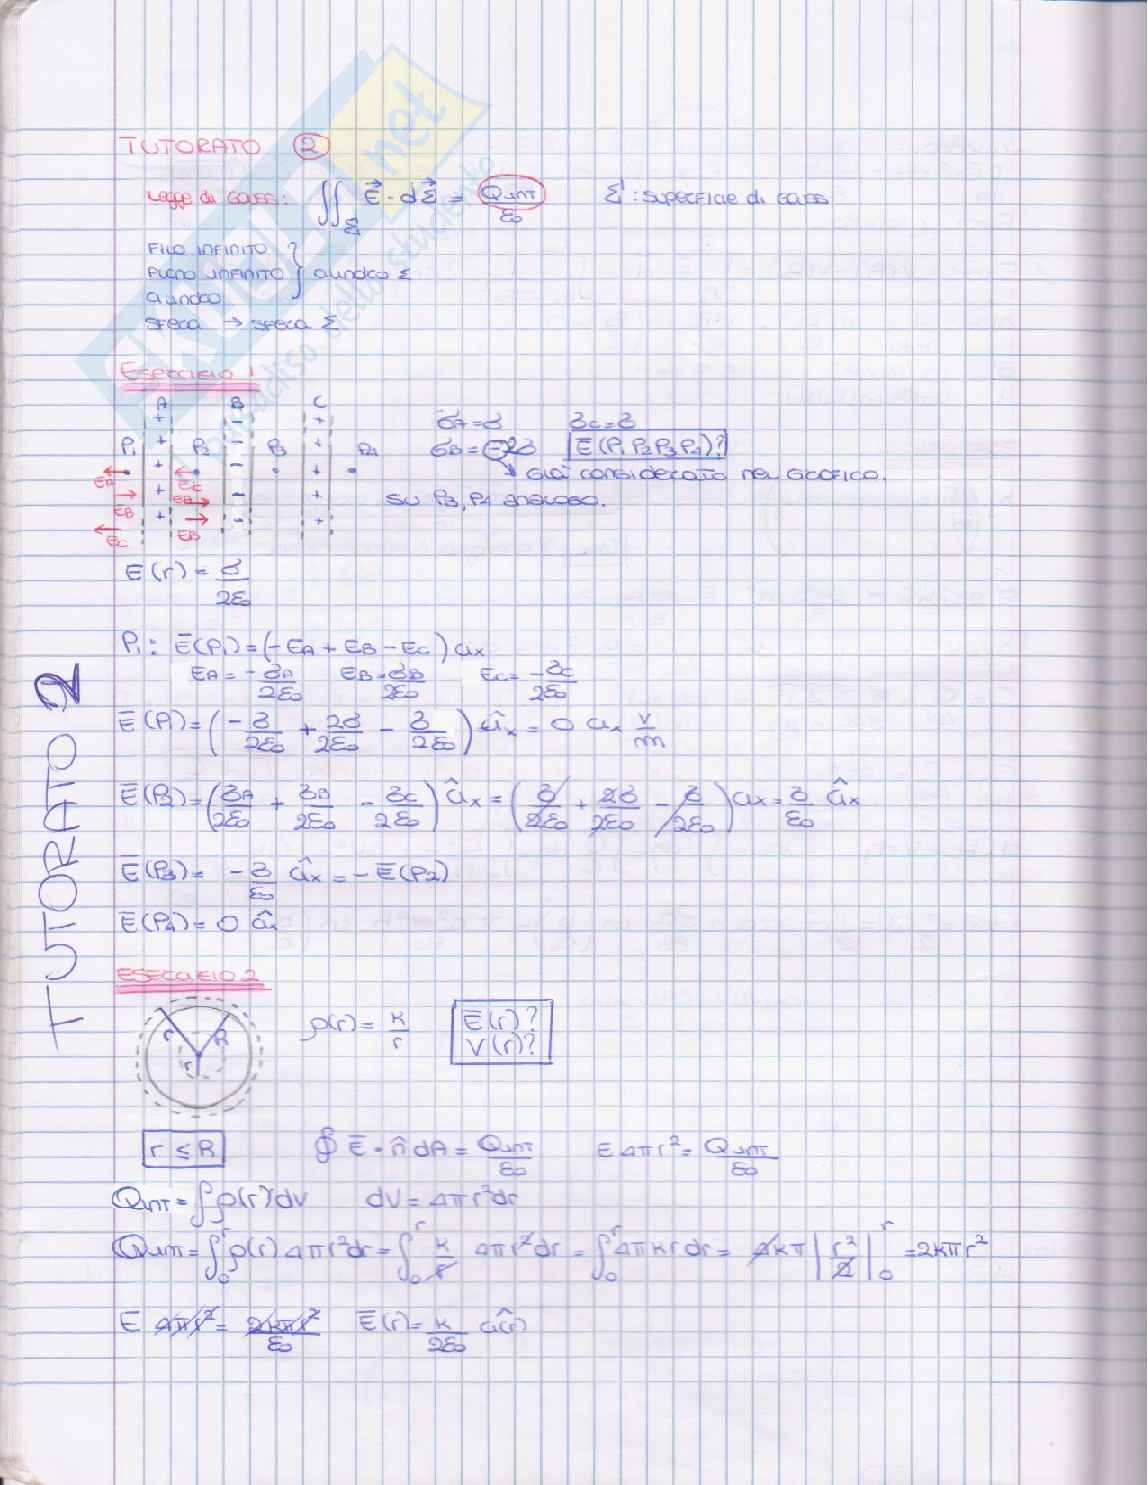 TUTORATO 2
Legge di Gauss: ∬_Σ E⃗ · dΣ⃗ = Qint/ε₀ Σ: superficie di Gauss
FILO INFINITO
PIANO INFINITO } cilindro Σ
cilindro
SFERA → SFERA Σ
ESERCIZIO 1
A B C
σA = σ σC = σ
P₁ P₂ P₃ P₄ σB = (-)2σ E̅(P₁ P₂ P₃ P₄)?
già considerato nel grafico.
EA EC EB EA EB EC
su P₃, P₄ analogo.
E(r) = σ/2ε₀
P₁: E̅(P₁) = (-EA + EB - EC) ux
EA = -σA/2ε₀ EB = σB/2ε₀ EC = -σC/2ε₀
E̅(P₁) = (-σ/2ε₀ + 2σ/2ε₀ - σ/2ε₀) ûx = 0 ux V/m
E̅(P₂) = (σA/2ε₀ + σB/2ε₀ - σC/2ε₀) ûx = (σ/2ε₀ + 2σ/2ε₀ - σ/2ε₀) ux = σ/ε₀ ûx
E̅(P₃) = -σ/ε₀ ûx = -E̅(P₂)
E̅(P₄) = 0 ûx
TUTORATO 2
ESERCIZIO 2
r R r
ρ(r) = k/r E̅(r)?
V(r)?
r ≤ R ∮ E̅ · n̂ dA = Qint/ε₀ E 4πr² = Qint/ε₀
Qint = ∫ρ(r)dV dV = 4πr²dr
Qint = ∫₀^r ρ(r) 4πr²dr = ∫₀^r k/r 4πr²dr = ∫₀^r 4πkr dr = 4kπ |r²/2|₀^r = 2kπr²
E 4πr² = 2kπr²/ε₀ E̅(r) = k/2ε₀ û(r)